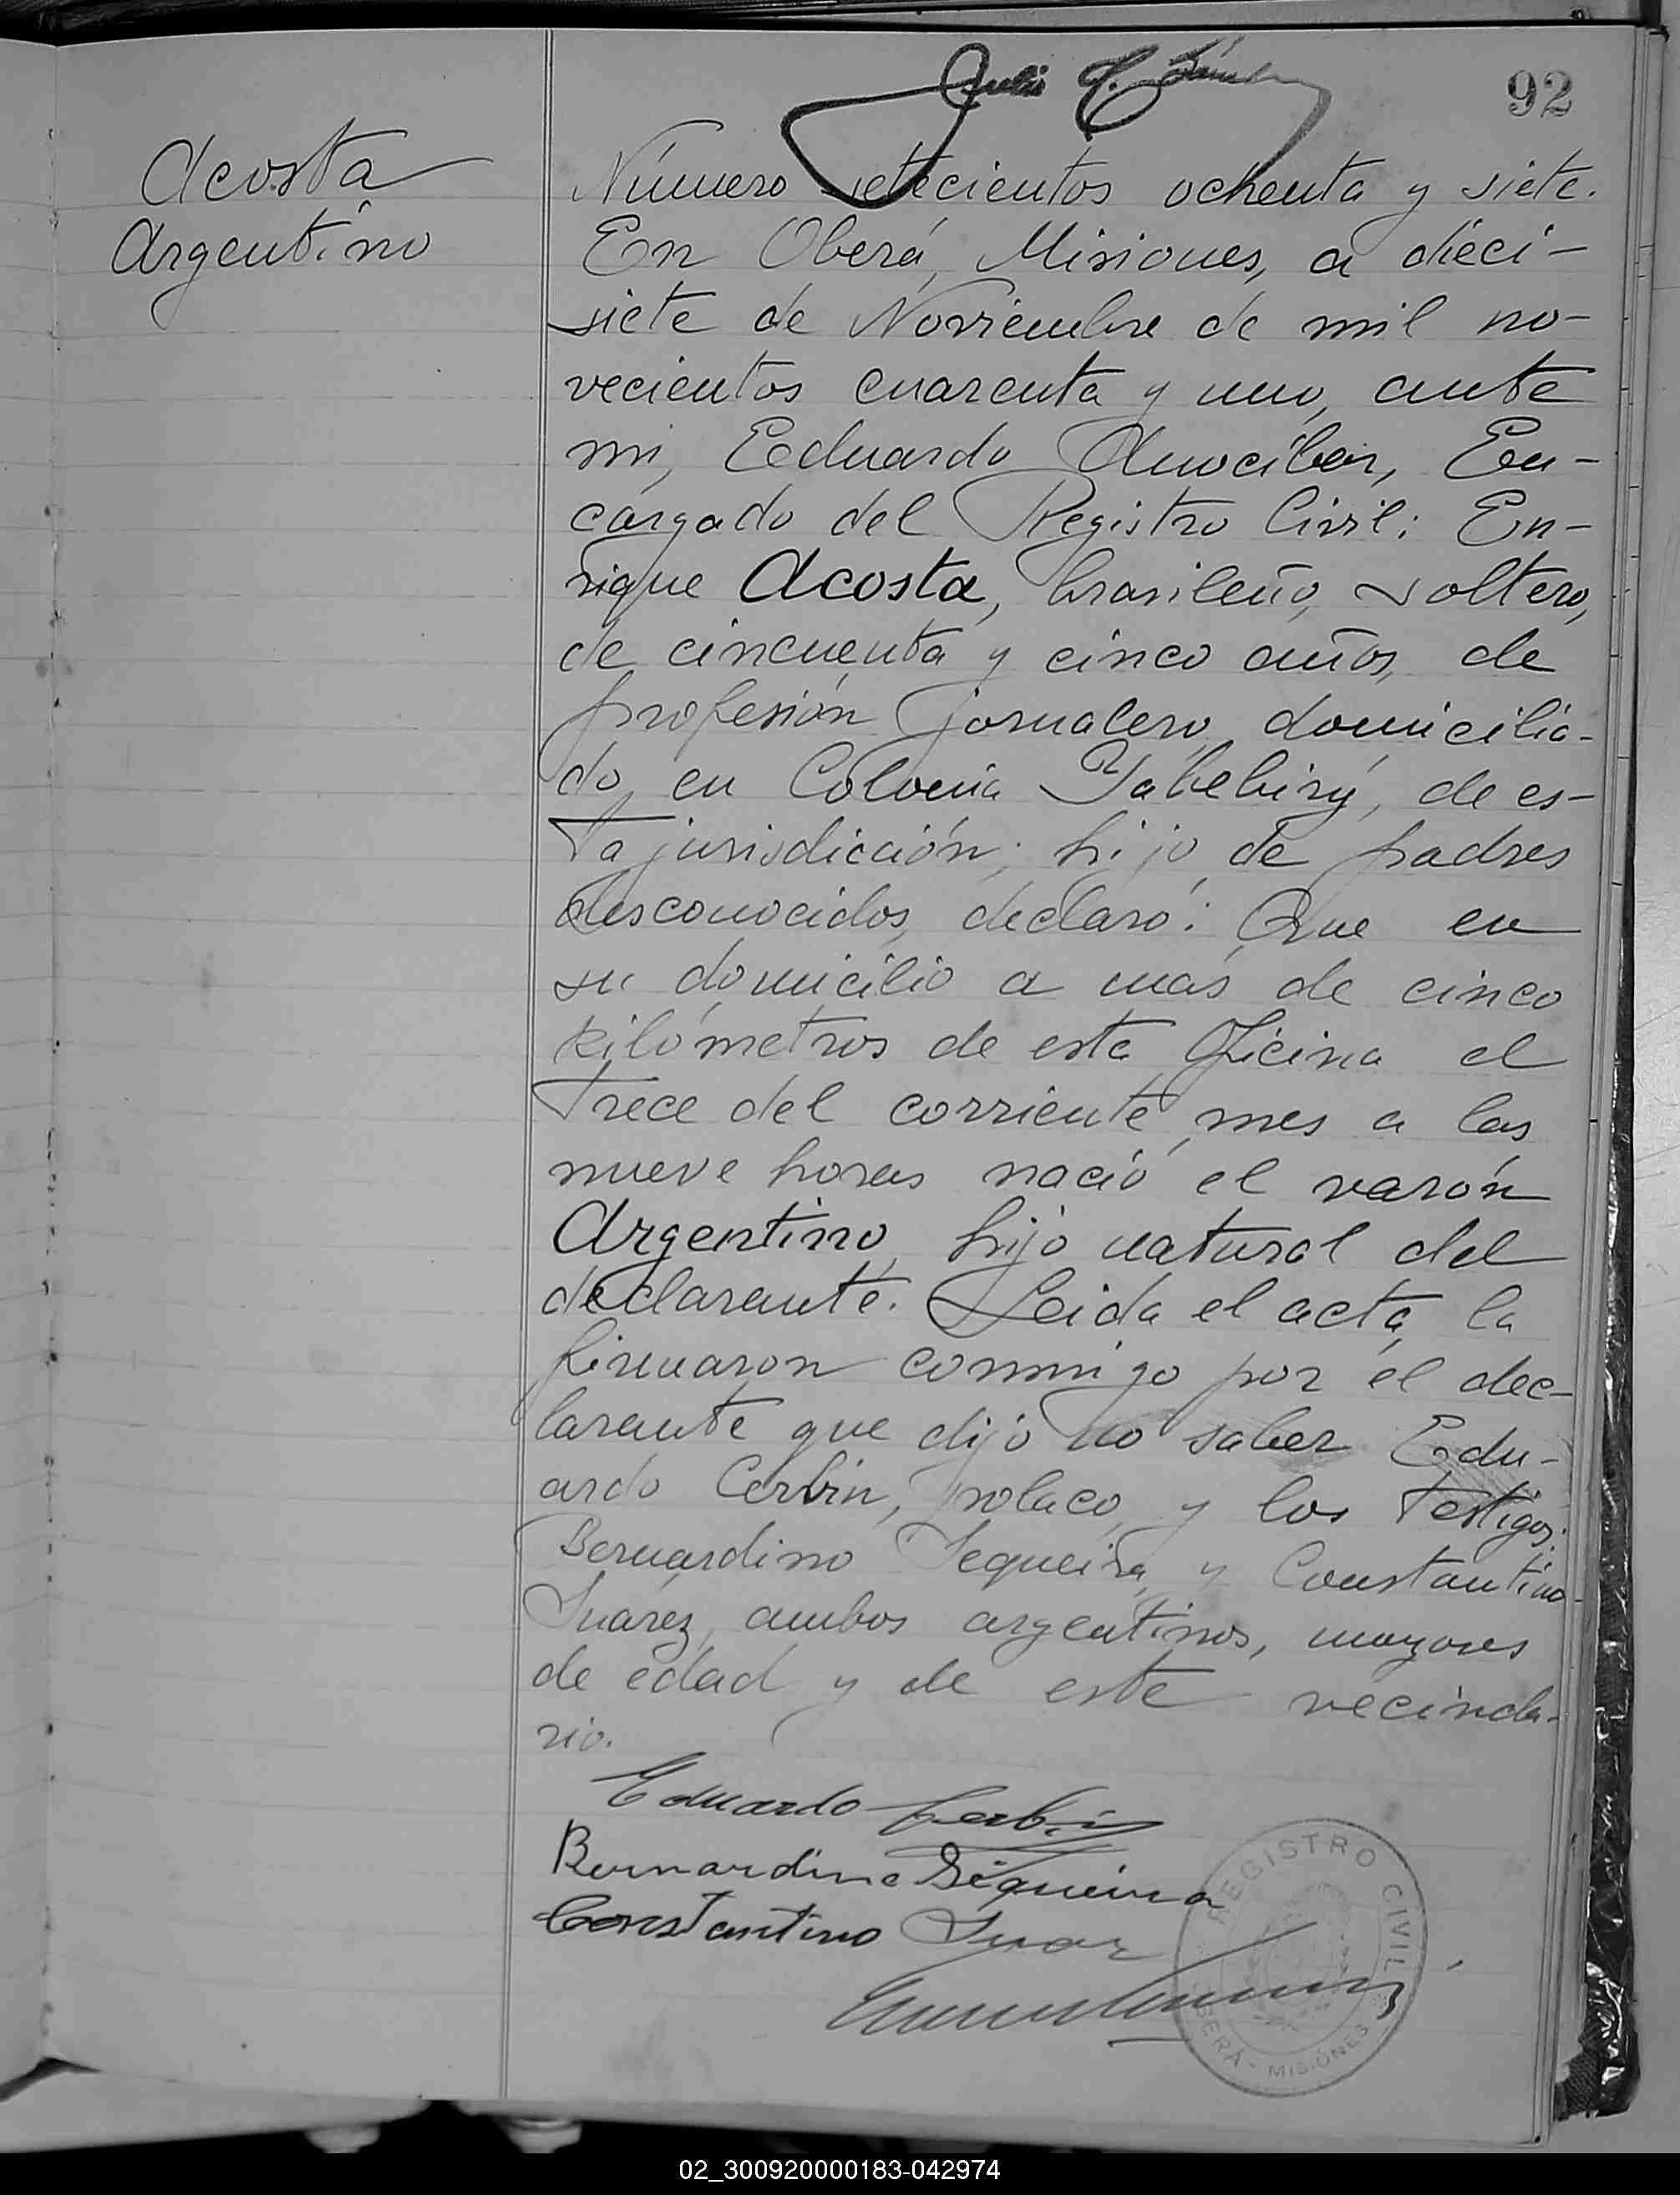 92
Acosta
Argentino
Número setecientos ochenta y siete.
En Oberá, Misiones, a dieci-
siete de Noviembre de mil no-
vecientos cuarenta y uno, ante
mi, Eduardo En-
cargado del Registro Civil: En-
rique Acosta, brasileño, soltero,
de cincuenta y cinco años, de
profesión jornalero, domicilia-
do en Colonia Yabebiry, de es-
ta jurisdicción; hijo de padres
desconocidos, declaró: Que en
su domicilio a mas de cinco
kilómetros de esta Oficina el
trece del corriente mes a las
nueve horas nació el varón
Argentino, hijo natural del
declarante. Leida el acta, la
firmaron conmigo por el dec-
larante que dijo no saber Edu-
ardo Cerbin, polaco, y los testigos:
Bernardino Sequeira y Constantino
Suárez, ambos argentinos, mayores
de edad y de este vecinda-
rio.
Eduardo Cerbin
Bernardino Sequeira
Constantino Suarez
REGISTRO CIVIL
OBERÁ - MISIONES
02_300920000183-042974